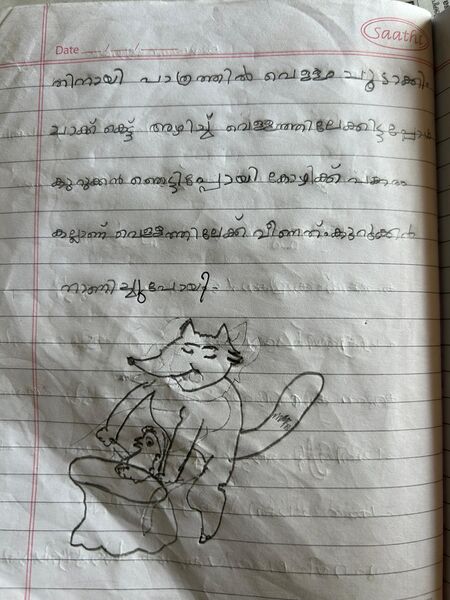 Saathi
Date
തിനായി പാത്രത്തിൽ വെള്ളം ചൂടാക്കി.
ചാക്ക് കെട്ട് അഴിച്ച് വെള്ളത്തിലേക്കിട്ടപ്പോൾ
കുറുക്കൻ ഞെട്ടിപ്പോയി കോഴിക്ക് പകരം
കല്ലാണ് വെള്ളത്തിലേക്ക് വീണത്. കുറുക്കൻ
നാണിച്ചുപോയി.